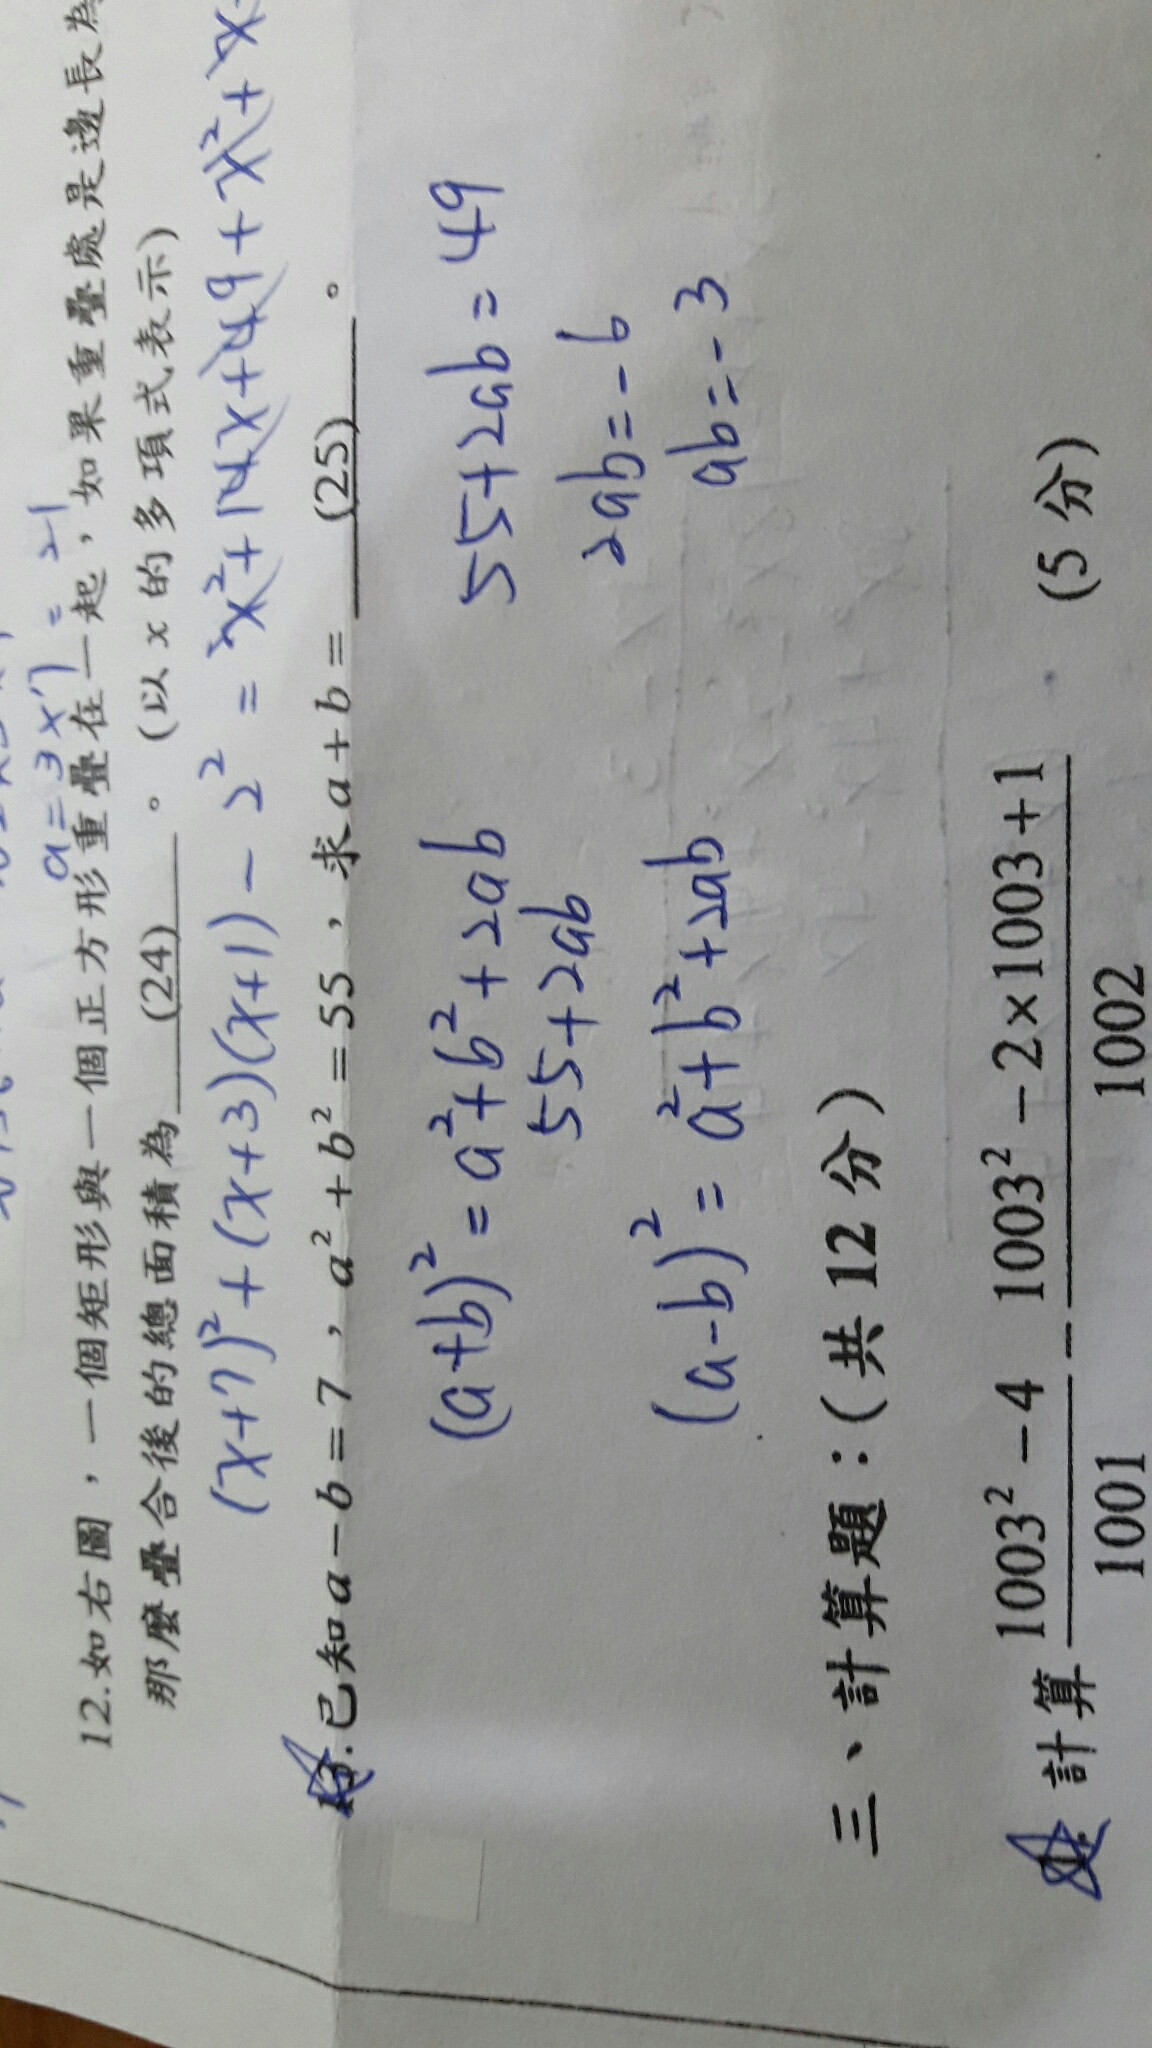 a = 3x'1 = 21
12.如右圖，一個矩形與一個正方形重疊在一起，如果重疊處是邊長為
那麼疊合後的總面積為 (24) 。(以 x 的多項式表示)
(x+7)²+(x+3)(x+1)-2² = x²+14x+49+x²+x
13.已知 a-b=7，a²+b²=55，求 a+b= (25) 。
(a+b)² = a²+b²+2ab 55+2ab=49
55+2ab 2ab=-6
(a-b)² = a²+b²+2ab ab=-3
三、計算題：(共 12 分)
計算 (1003²-4)/1001 - (1003²-2×1003+1)/1002 (5 分)